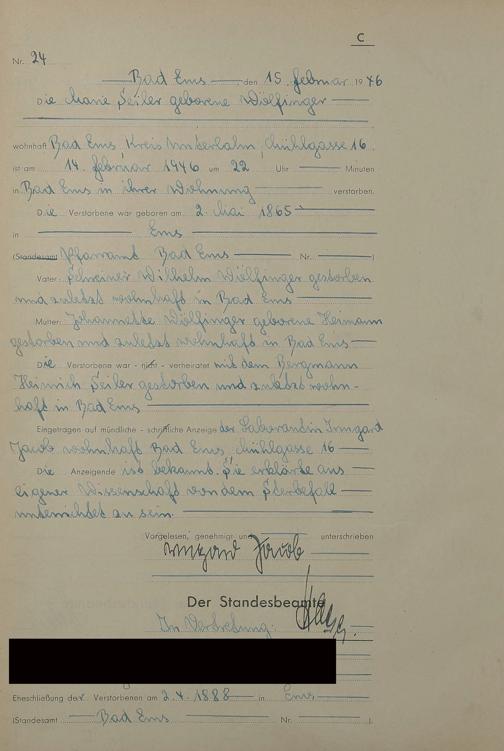 C
Nr. 24
Bad Ems den 15. februar 1946
Die Marie Seiler geborene Wölfinger
wohnhaft Bad Ems, Kreis Unterlahn, Mühlgasse 16
ist am 14. februar 1946 um 22 Uhr Minuten
in Bad Ems in ihrer Wohnung verstorben.
Die Verstorbene war geboren am 2. Mai 1865
in Ems
(Standesamt Pfarramt Bad Ems Nr. )
Vater: Schreiner Wilhelm Wölfinger gestorben
und zuletzt wohnhaft in Bad Ems
Mutter: Johannette Wölfinger geborene Heimann
gestorben und zuletzt wohnhaft in Bad Ems
Die Verstorbene war - nicht - verheiratet mit dem Bergmann
Heinrich Seiler gestorben und zuletzt wohn-
haft in Bad Ems
Eingetragen auf mündliche - schriftliche Anzeige der Laborantin Irmgard
Jacob wohnhaft Bad Ems, Mühlgasse 16
Die Anzeigende ist bekannt. Sie erklärte aus
eigener Wissenschaft von dem Sterbefall
unterrichtet zu sein.
Vorgelesen, genehmigt und unterschrieben
Irmgard Jacob
Der Standesbeamte
In Vertretung:
Eheschließung der Verstorbenen am 2.4.1888 in Ems
(Standesamt Bad Ems Nr. ).